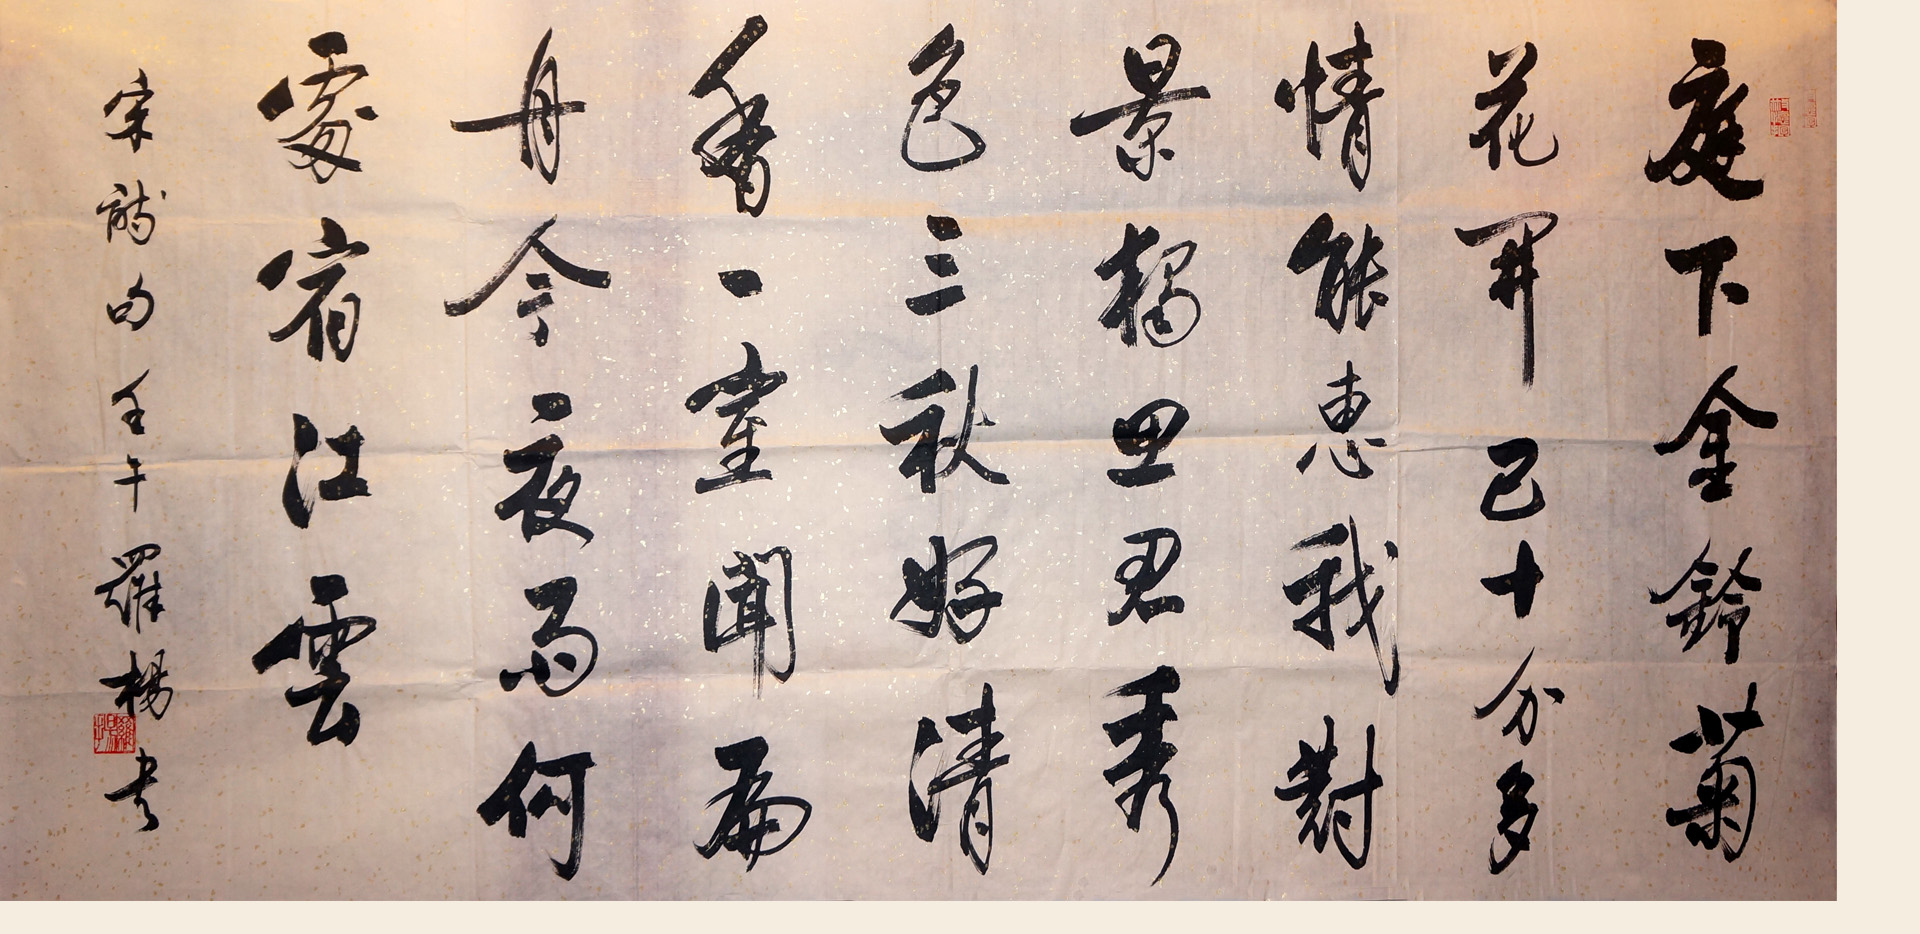 庭下金鈴菊
花開已十分多
情能惠我對
景獨思君秀
色三秋好清
香一室聞扁
舟今夜雨何
處宿江雲
壬午羅楊书